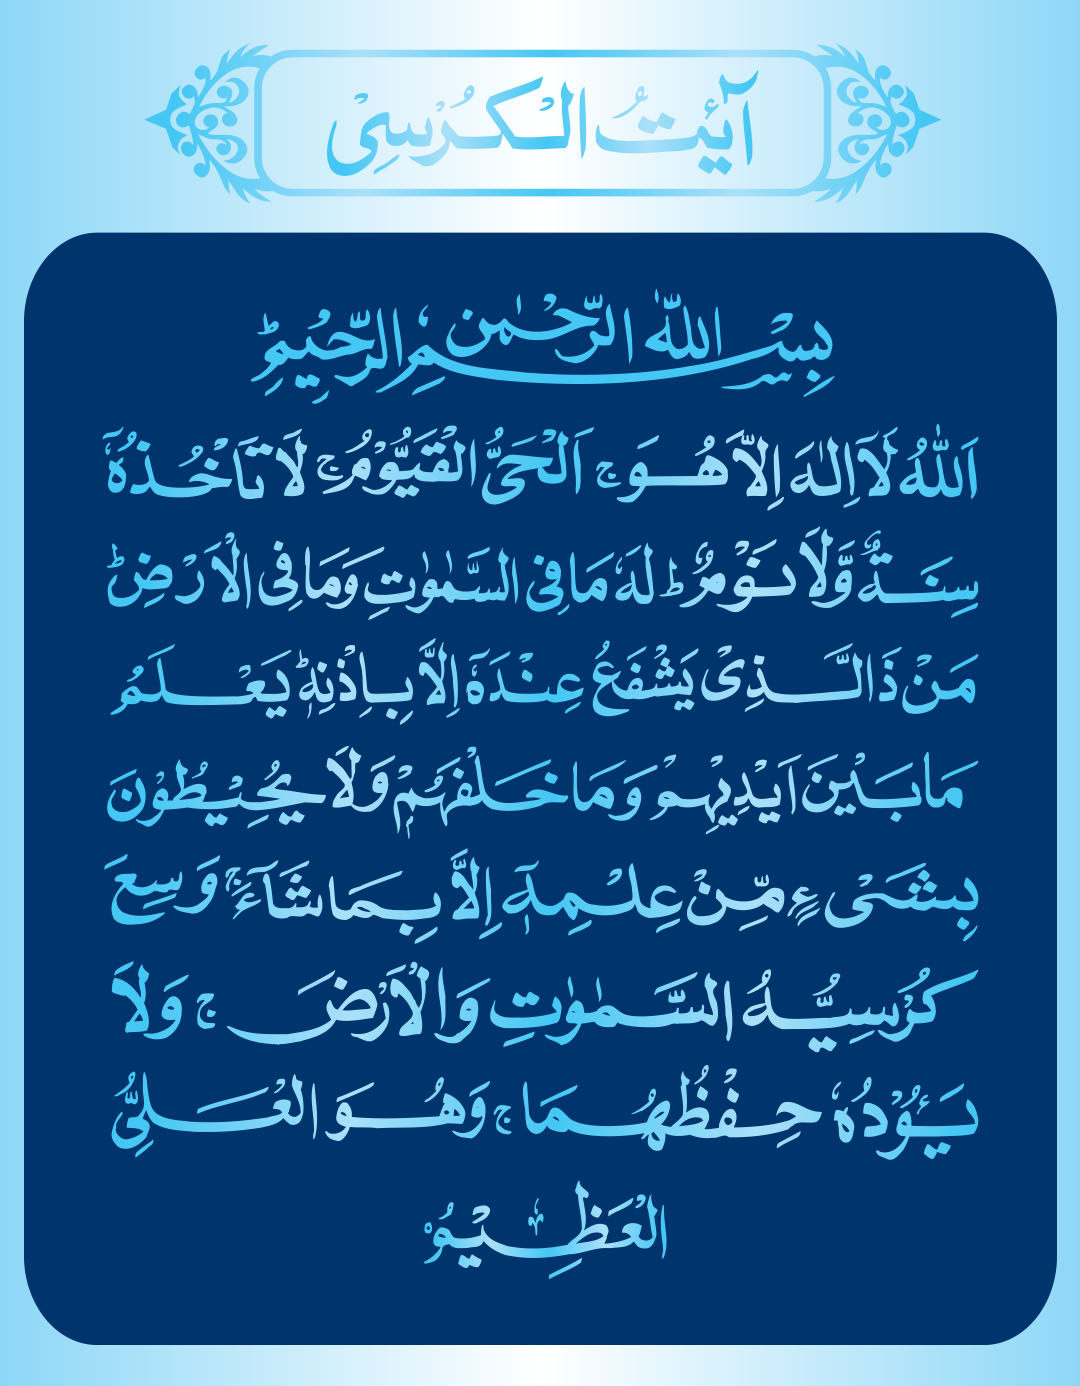 آيَتُ الْكُرْسِىْ
بِسْمِ اللهِ الرَّحْمٰنِ الرَّحِيْمِؕ
اَللهُ لَاۤ اِلٰهَ اِلَّا هُوَۚ اَلْحَىُّ الْقَيُّوْمُۚ لَا تَاْخُذُهٗ
سِنَةٌ وَّلَا نَوْمٌؕ لَهٗ مَا فِى السَّمٰوٰتِ وَمَا فِى الْاَرْضِؕ
مَنْ ذَا الَّذِىْ يَشْفَعُ عِنْدَهٗۤ اِلَّا بِاِذْنِهٖؕ يَعْلَمُ
مَا بَيْنَ اَيْدِيْهِمْ وَمَا خَلْفَهُمْۚ وَلَا يُحِيْطُوْنَ
بِشَىْءٍ مِّنْ عِلْمِهٖۤ اِلَّا بِمَا شَآءَۚ وَسِعَ
كُرْسِيُّهُ السَّمٰوٰتِ وَالْاَرْضَۚ وَلَا
يَـُٔوْدُهٗ حِفْظُهُمَاۚ وَهُوَ الْعَلِىُّ
الْعَظِيْمُ